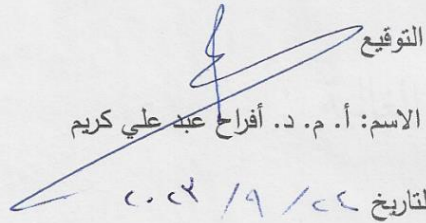 التوقيع
الاسم: أ. م. د. أفراح عبد علي كريم
لتاريخ ٢٤ / ٩ / ٢٠٢٣